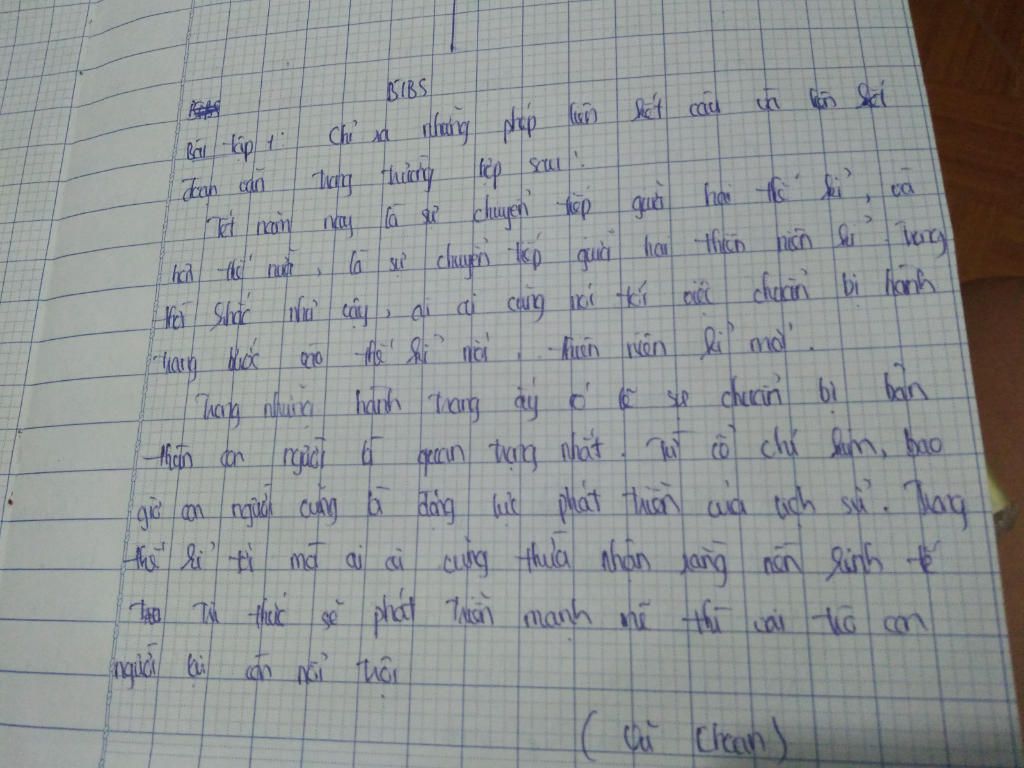 BTBS
Bài tập 1: Chỉ ra những phép liên kết câu và liên kết
đoạn văn trong trường hợp sau:
Tết năm nay là sự chuyển tiếp giữa hai thế kỉ, và
hơn thế nữa, là sự chuyển tiếp giữa hai thiên niên kỉ. Trong
thời khắc như vậy, ai ai cũng nói tới việc chuẩn bị hành
trang bước vào thế kỉ mới, thiên niên kỉ mới.
Trong những hành trang ấy có lẽ sự chuẩn bị bản
thân con người là quan trọng nhất. Từ cổ chí kim, bao
giờ con người cũng là động lực phát triển của lịch sử. Trong
thế kỉ tới mà ai ai cũng thừa nhận rằng nền kinh tế
tri thức sẽ phát triển mạnh mẽ thì vai trò con
người lại càng nổi trội
( Vũ Khoan )